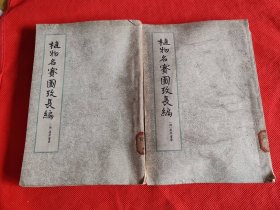 植物名實圖攷長編
植物名實圖攷長編